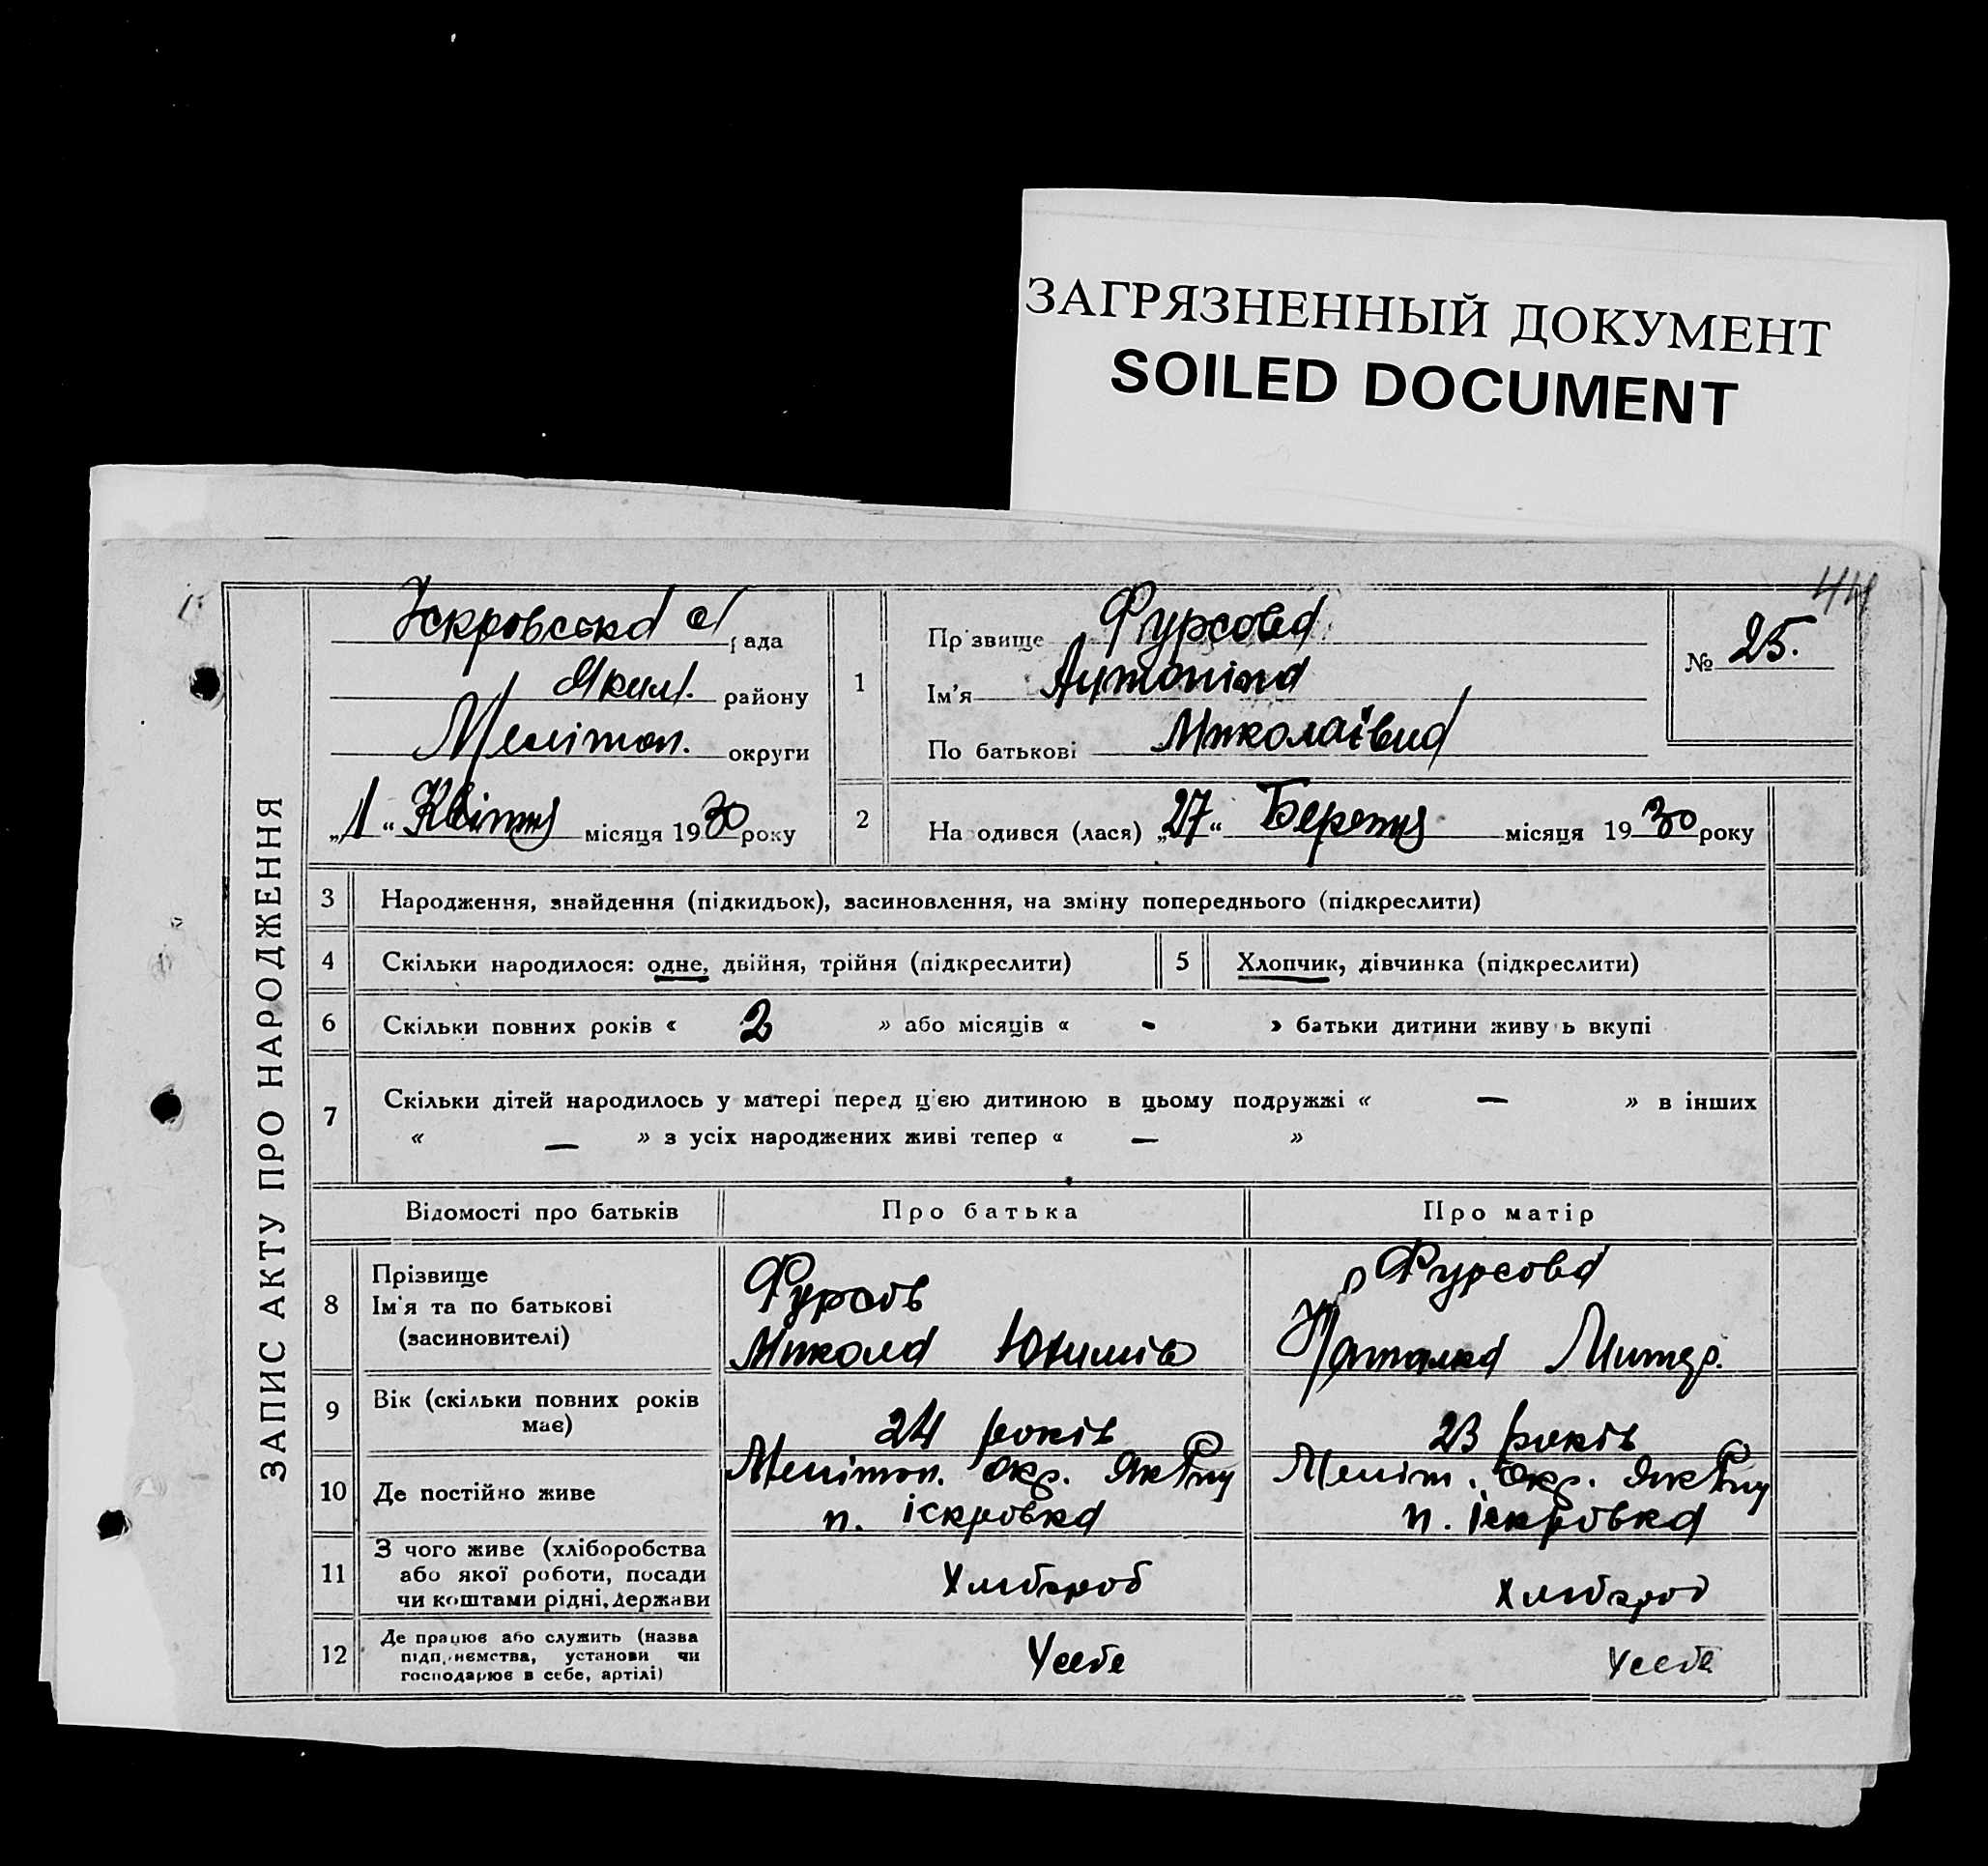 ЗАГРЯЗНЕННЫЙ ДОКУМЕНТ
SOILED DOCUMENT
44
ЗАПИС АКТУ ПРО НАРОДЖЕННЯ
Іскровська с/рада
Яким. району
Мелітоп. округи
„1“ Квітня місяця 1930 року
1
Пр звище Фурсова
Ім'я
По батькові Миколаївна
№ 25.
2
На одився (лася) „27“ Березня місяця 1930 року
3 Народження, знайдення (підкидьок), засиновлення, на зміну попереднього (підкреслити)
4 Скільки народилося: одне, двійня, трійня (підкреслити)
5 Хлопчик, дівчинка (підкреслити)
6 Скільки повних років « 2 » або місяців « - » батьки дитини живу ь вкупі
7 Скільки дітей народилось у матері перед ц'єю дитиною в цьому подружжі « — » в інших
« — » з усіх народжених живі тепер « — »
Відомості про батьків Про батька Про матір
8 Прізвище
Ім'я та по батькові
(засиновителі)
Фурсов
Микола
Фурсова
Наталка Митр.
9 Вік (скільки повних років
має)
24 років
23 років
10 Де постійно живе
Мелітоп. окр.
п. іскровка
Меліт. окр.
п. іскровка
11 З чого живе (хліборобства
або якої роботи, посади
чи коштами рідні, держави
Хлибороб
Хлибороб
12 Де працює або служить (назва
підп, нємства, установи чи
господарює в себе, артілі)
Усебе
Усебе